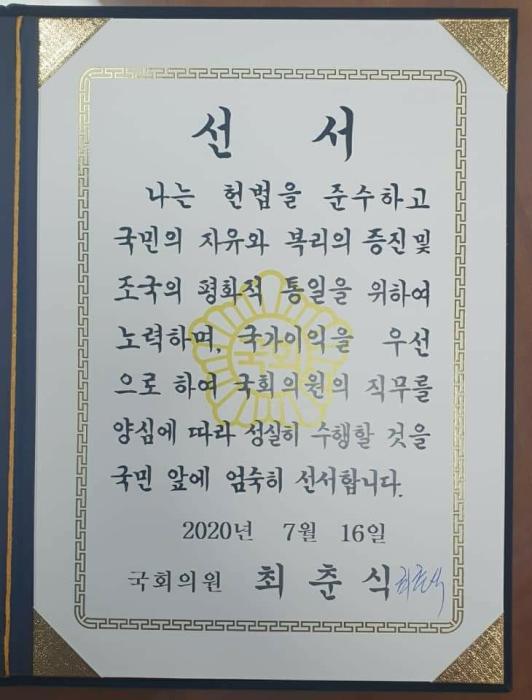 선 서
나는 헌법을 준수하고
국민의 자유와 복리의 증진 및
조국의 평화적 통일을 위하여
노력하며, 국가이익을 우선
으로 하여 국회의원의 직무를
양심에 따라 성실히 수행할 것을
국민 앞에 엄숙히 선서합니다.
국회
2020년 7월 16일
국회의원 최 춘 식 최춘식